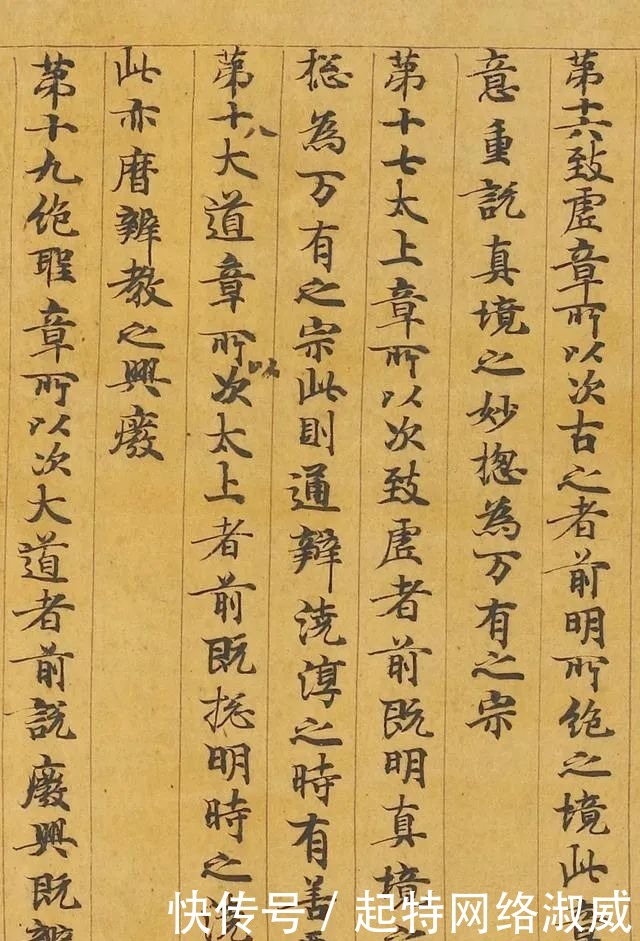 第十六致虚章所以次古之者前明所绝之境此
意重說真境之妙揔為万有之宗
第十七太上章所以次致虚者前既明真境之
揔為万有之宗此則通辯澆淳之時有善
第十八大道章所以次太上者前既揔明時之澆
此亦曆辯教之興癈
第十九绝聖章所以次大道者前說癈興既辯
快传号/起特网络淑威